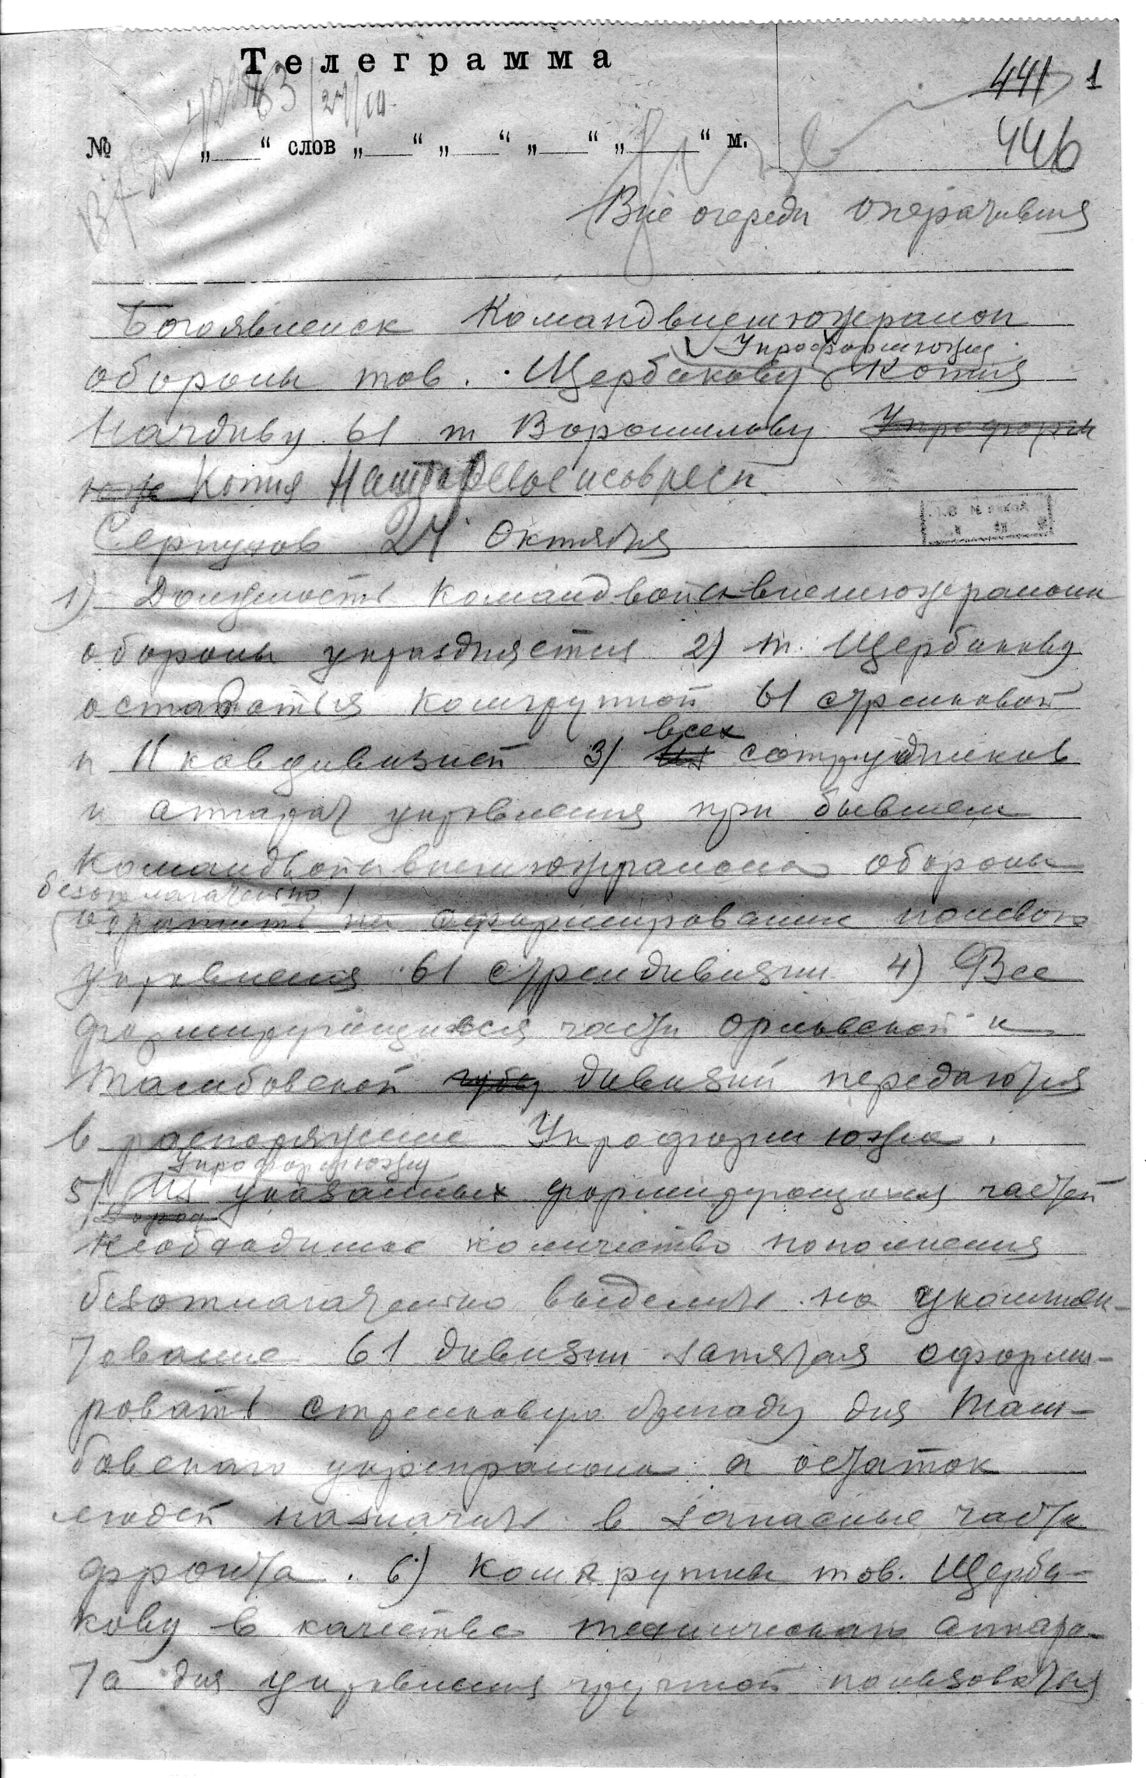 Телеграмма
441 1
446
№ „ “ слов „ “ „ “ „ “ „ “ м.
Вне очереди Оперативная
Богоявленск Командвнешюжрайон
Упрформюжу
обороны тов. Щербакову Копия
Начдиву 61 т Ворошилову Упроформ
юж Копия Наштареввоенсовресп
Серпухов 24 Октября
1) Должность командвойсквнешюжрайона
обороны упраздняется 2) т. Щербакову
остаться комгруппой 61 стрелковой
и 11 кавдивизией 3) всех сотрудников
и аппарат управления при бывшем
командвойсквнешюжрайона обороны
безотлагательно
обратить на сформирование полевого
управления 61 стрелдивизии 4) Все
формирующиеся части орловской и
Тамбовской губ дивизий передаются
в распоряжение Упроформюжа.
Упроформюжу
5) Из указанных формирующихся частей
необходимое количество пополнения
безотлагательно выделить на укомплек-
тование 61 дивизии затем сформи-
ровать стрелковую бригаду для Там-
бовского укрепрайона а остаток
людей назначить в запасные части
фронта. 6) Комгруппы тов. Щерба-
кову в качестве технического аппара-
та для управления группой пользоваться